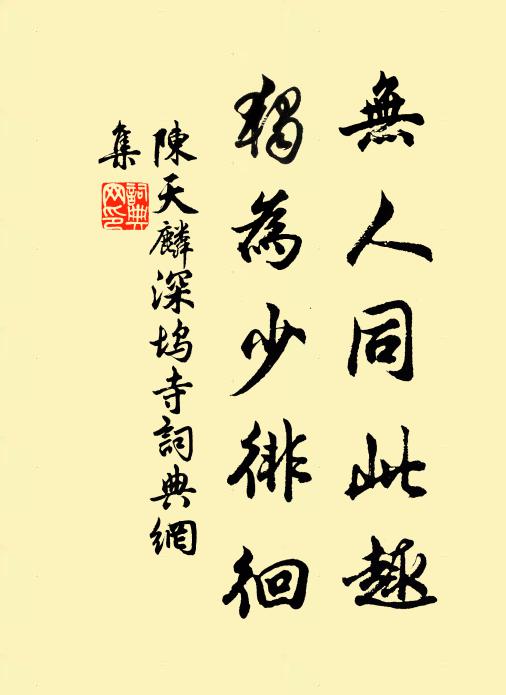 無人同此趣
獨為少徘徊
陳天麟深塢寺詞典網
集
詞典網印